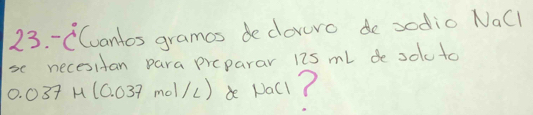 23.-¿Cuantos gramos de cloruro de sodio NaCl
se necesitan para preparar 125 mL de soluto
0.037 M (0.037 mol/L) de NaCl?